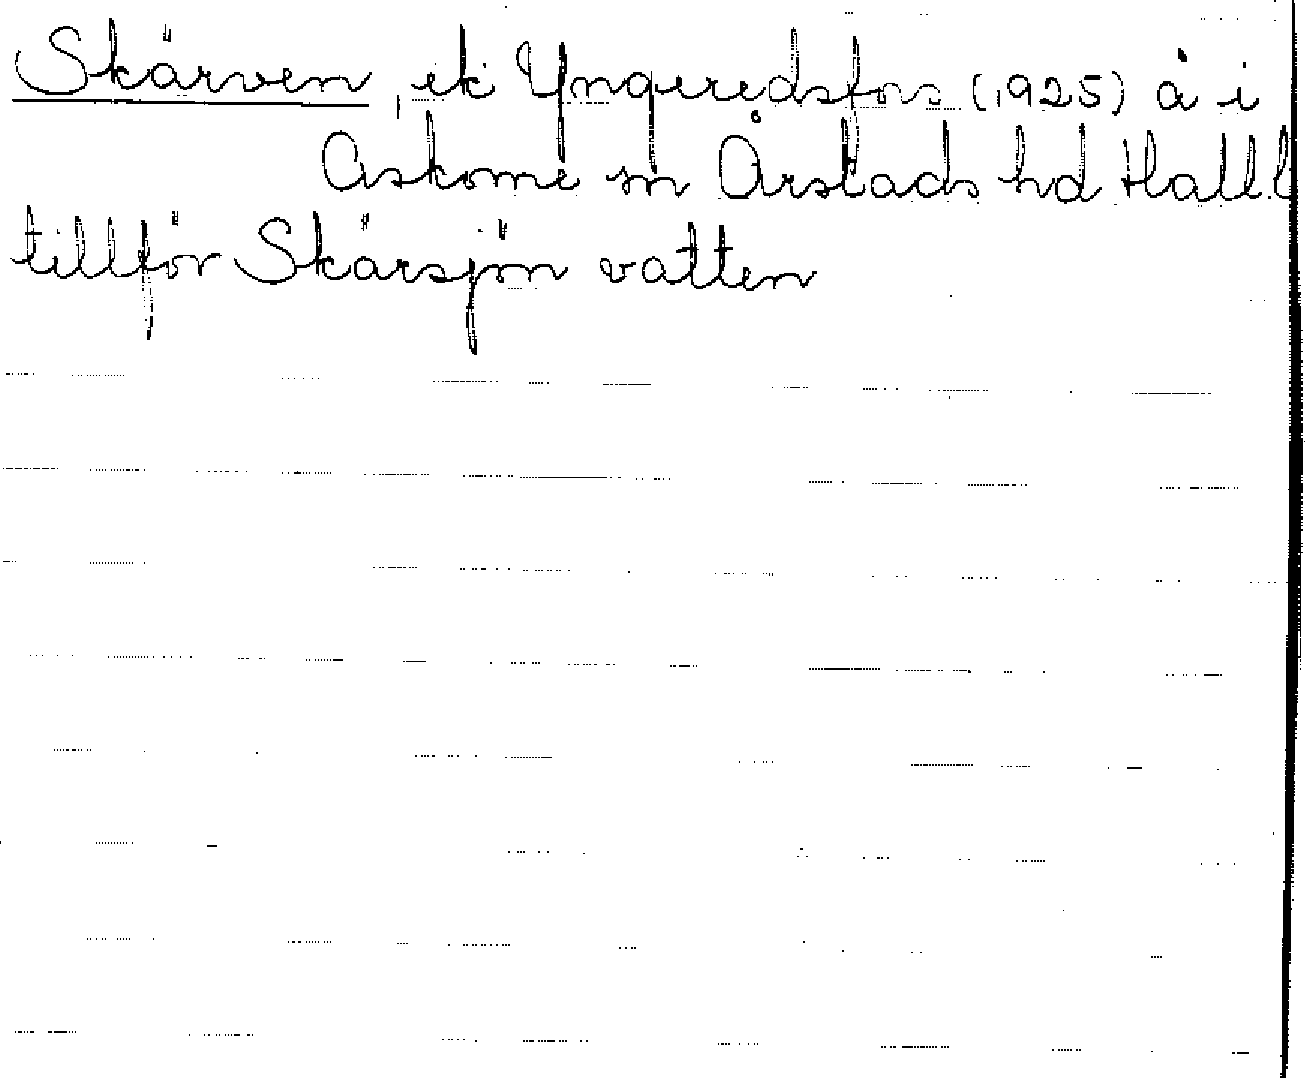 Skärven, ek Yngeredsfors (1925) å i
Askome sn Årstads hd Hall.l
tillför Skärsjön vatten